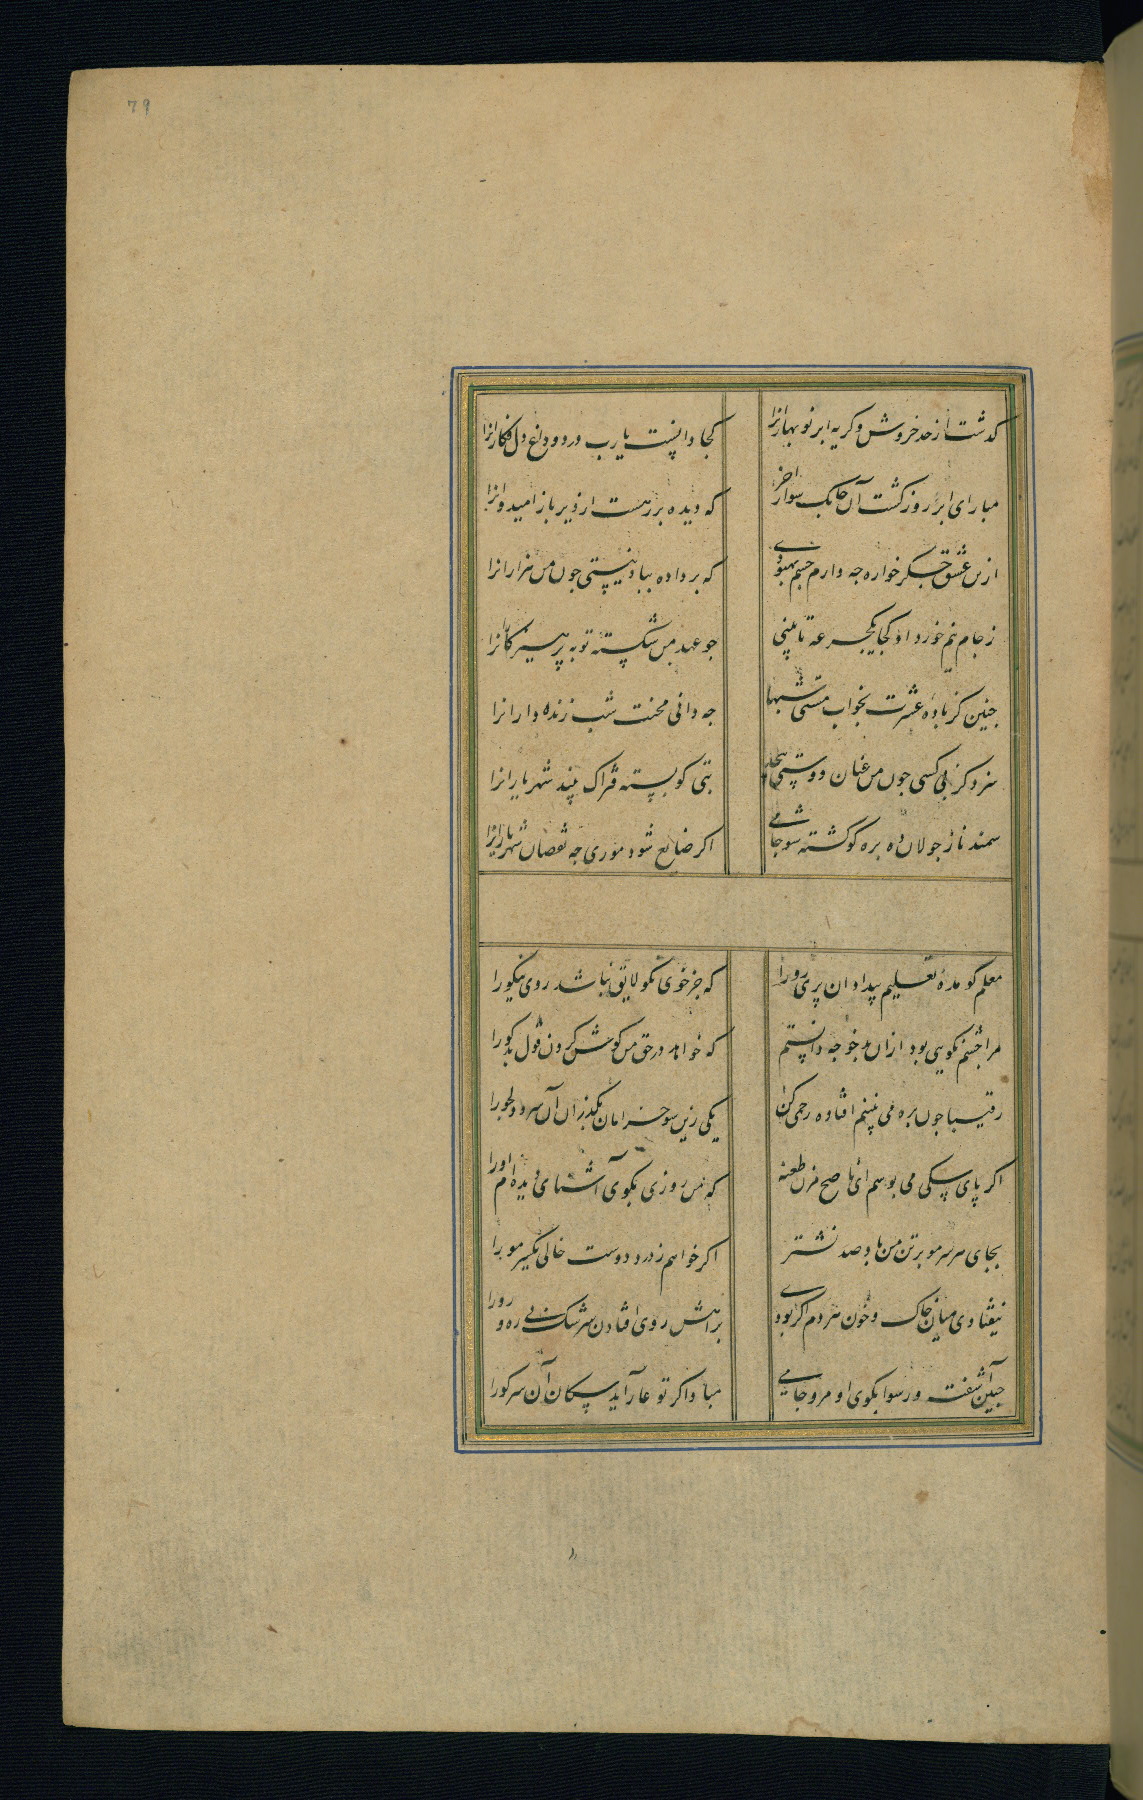 79
گذشت از حد خروش و گریه ابر نو بهارانرا
کجا دانست یارب درد و داغ دل فکارانرا
مبار ای ابر روز گشت آن چابک سوار آخر
که دیده بر رهست از دیر باز امیدوارانرا
ازین عشق جگر خواره چه دارم چشم بهبودی
که بر داده بباد نیستی چون من هزارانرا
ز جام نیم خورد او کجا یکجرعه تا بینی
چو عهد من شکسته توبه پرهیزکارانرا
چنین کز باده عشرت بخواب مستی شبها
چه دانی محنت شب زنده دارانرا
سزد کز بی کسی چون من عنان
بتی کو بسته فتراک بیند شهریارانرا
سمند ناز جولان ده بره گو گشته شو جامی
اگر ضایع شود موری چه نقصان شهریارانرا
معلم گو مده تعلیم بیداد آن پری رو را
که جز خوی نکو لایق نباشد روی نیکو را
مرا چشم نکویی بود ازان بدخو چه دانستم
که خواهد در حق من گوش کردن قول بدگو را
رقیبا چون بره می بینم افتاده رحمی کن
یکی زین سو خرامان بگذران آن سرو دلجو را
اگر پای سگی می بوسم ای ناصح مزن طعنه
که من روزی بکوی آشنایی دیده ام او را
بجای هر سر مو بر تن من باد صد نشتر
اگر خواهم ز درد دوست خالی یکسر مو را
نیفتادی میان خاک و خون هر دم اگر بودی
براهش روی افتادن سرشک بی ره و رو را
چنین آشفته و رسوا بکوی او مرو جامی
مبادا کز تو عار آید سگان آن سر کو را